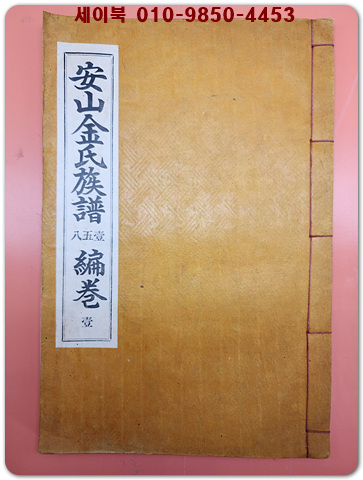 세이북 010-9850-4453
安山金氏族譜
八五壹
編卷
壹